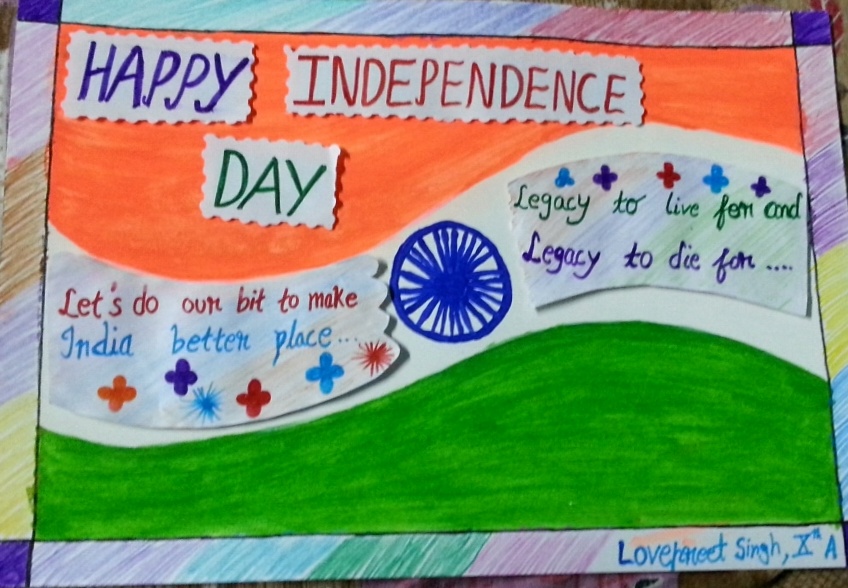 HAPPY INDEPENDENCE
DAY
Legacy to live for and
Legacy to die for ....
Let's do our bit to make
India better place...
Lovepreet Singh, Xth A